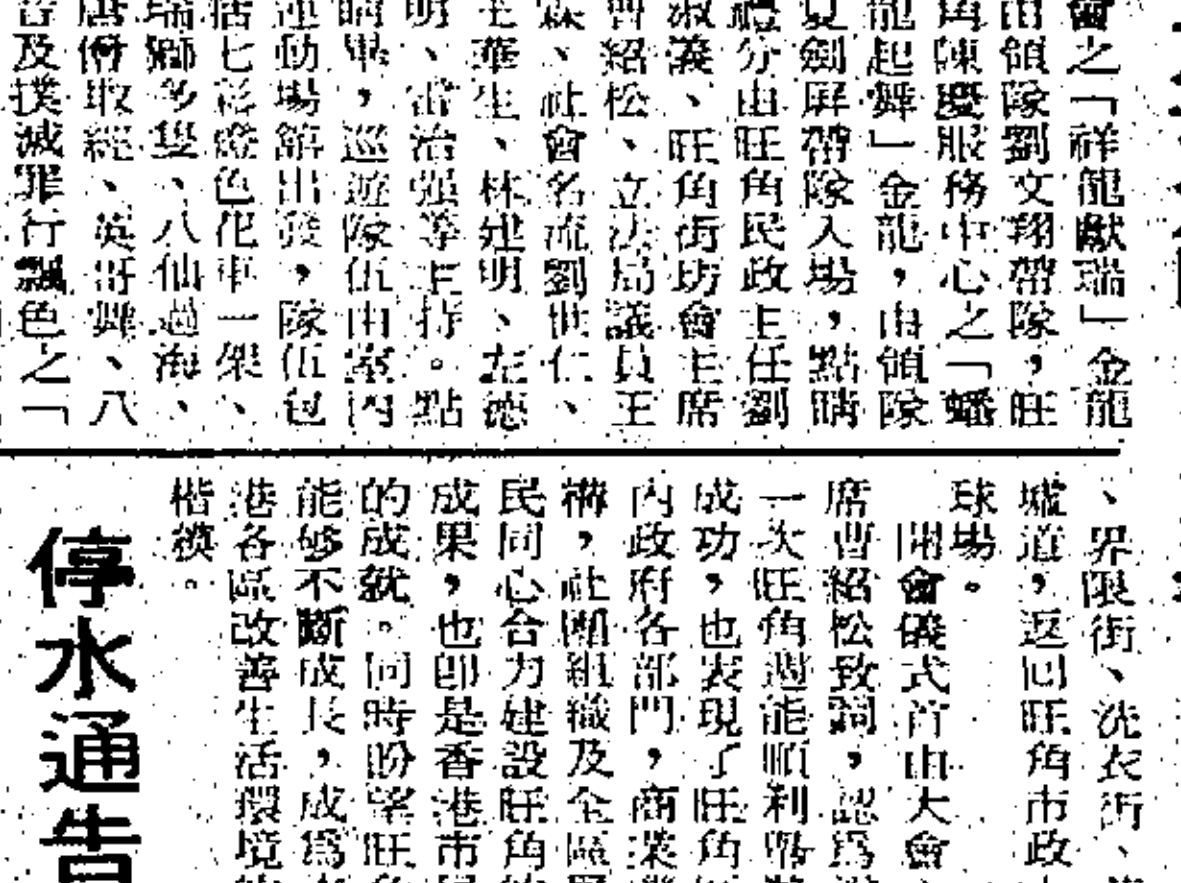 會之「祥龍獻瑞」金龍
由領隊劉文翔帶隊，旺
角陳慶服務中心之「蟠
龍起舞」金龍，由領隊
夏劍屏帶隊入場，點睛
禮分由旺角民政主任劉
淑義、旺角街坊會主席
曹紹松、立法局議員王
霖、社會名流劉世仁、
王華生、林建明、左德
明、雷治強等主持。點
睛畢，巡遊隊伍由室內
運動場舘出發，隊伍包
括七彩燈色花車一架、
瑞獅多隻、八仙過海、
唐僧取經、英哥舞、八
及撲滅罪行飄色之「
、界限街、洗衣街、
墟道，返回旺角市政
球場。
開會儀式首由大會
席曹紹松致詞，認爲
一次旺角週能順利舉
成功，也表現了旺角
內政府各部門，商業
構，社團組織及全區
民同心合力建設旺角
成果，也卽是香港市
的成就。同時盼望旺
能够不斷成長，成爲
港各區改善生活環境
楷模。
停水通告